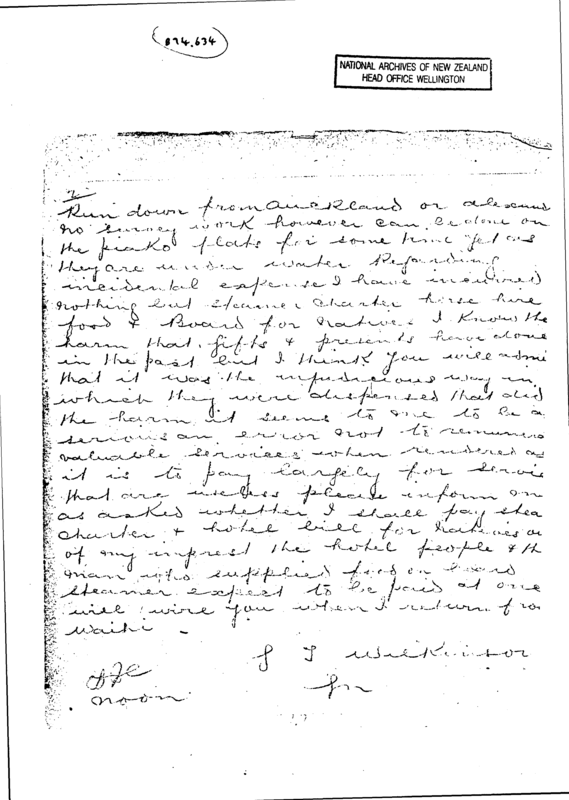 874.634
NATIONAL ARCHIVES OF NEW ZEALAND
HEAD OFFICE WELLINGTON
2
Run down from Auckland or
no survey work however can be done on
the piako flats for some time yet as
they are under water Regarding
incidental expense I have incurred
nothing but steamer charter horse hire
food & Board for natives I know the
harm that gifts & presents have done
in the past but I think you will admi
that it was the injudicious way in
which they were dispensed that did
the harm it seems to me to be a
serious an error not to remunera
valuable services when rendered as
it is to pay largely for servic
that are useless please inform on
as asked whether I shall pay stea
charter & hotel bill for natives ou
of my imprest the hotel people & th
man who supplied food on board
steamer expect to be paid at once
will wire you when I return fro
Waihi -
Wilkinson
noon